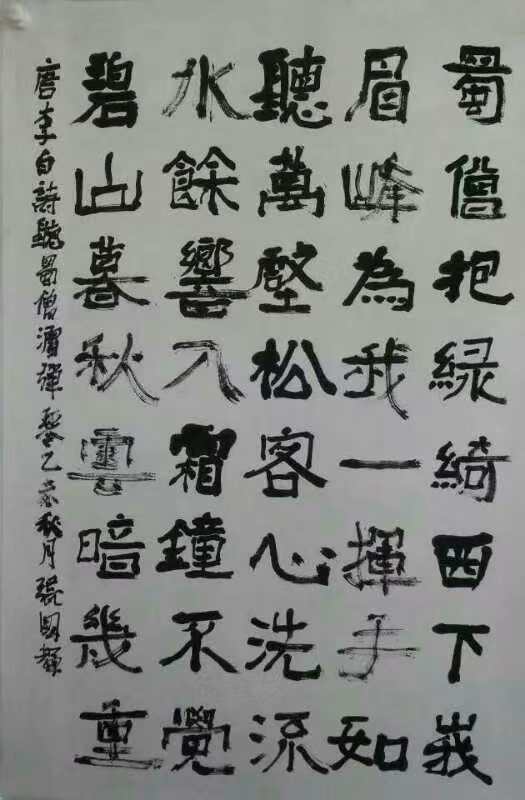 蜀僧抱綠綺西下峩
眉峰為我一揮手如
聽萬壑松客心洗流
水餘響入霜鐘不覺
碧山暮秋雲暗幾重
唐李白詩聽蜀僧濬彈琴乙亥秋月張國